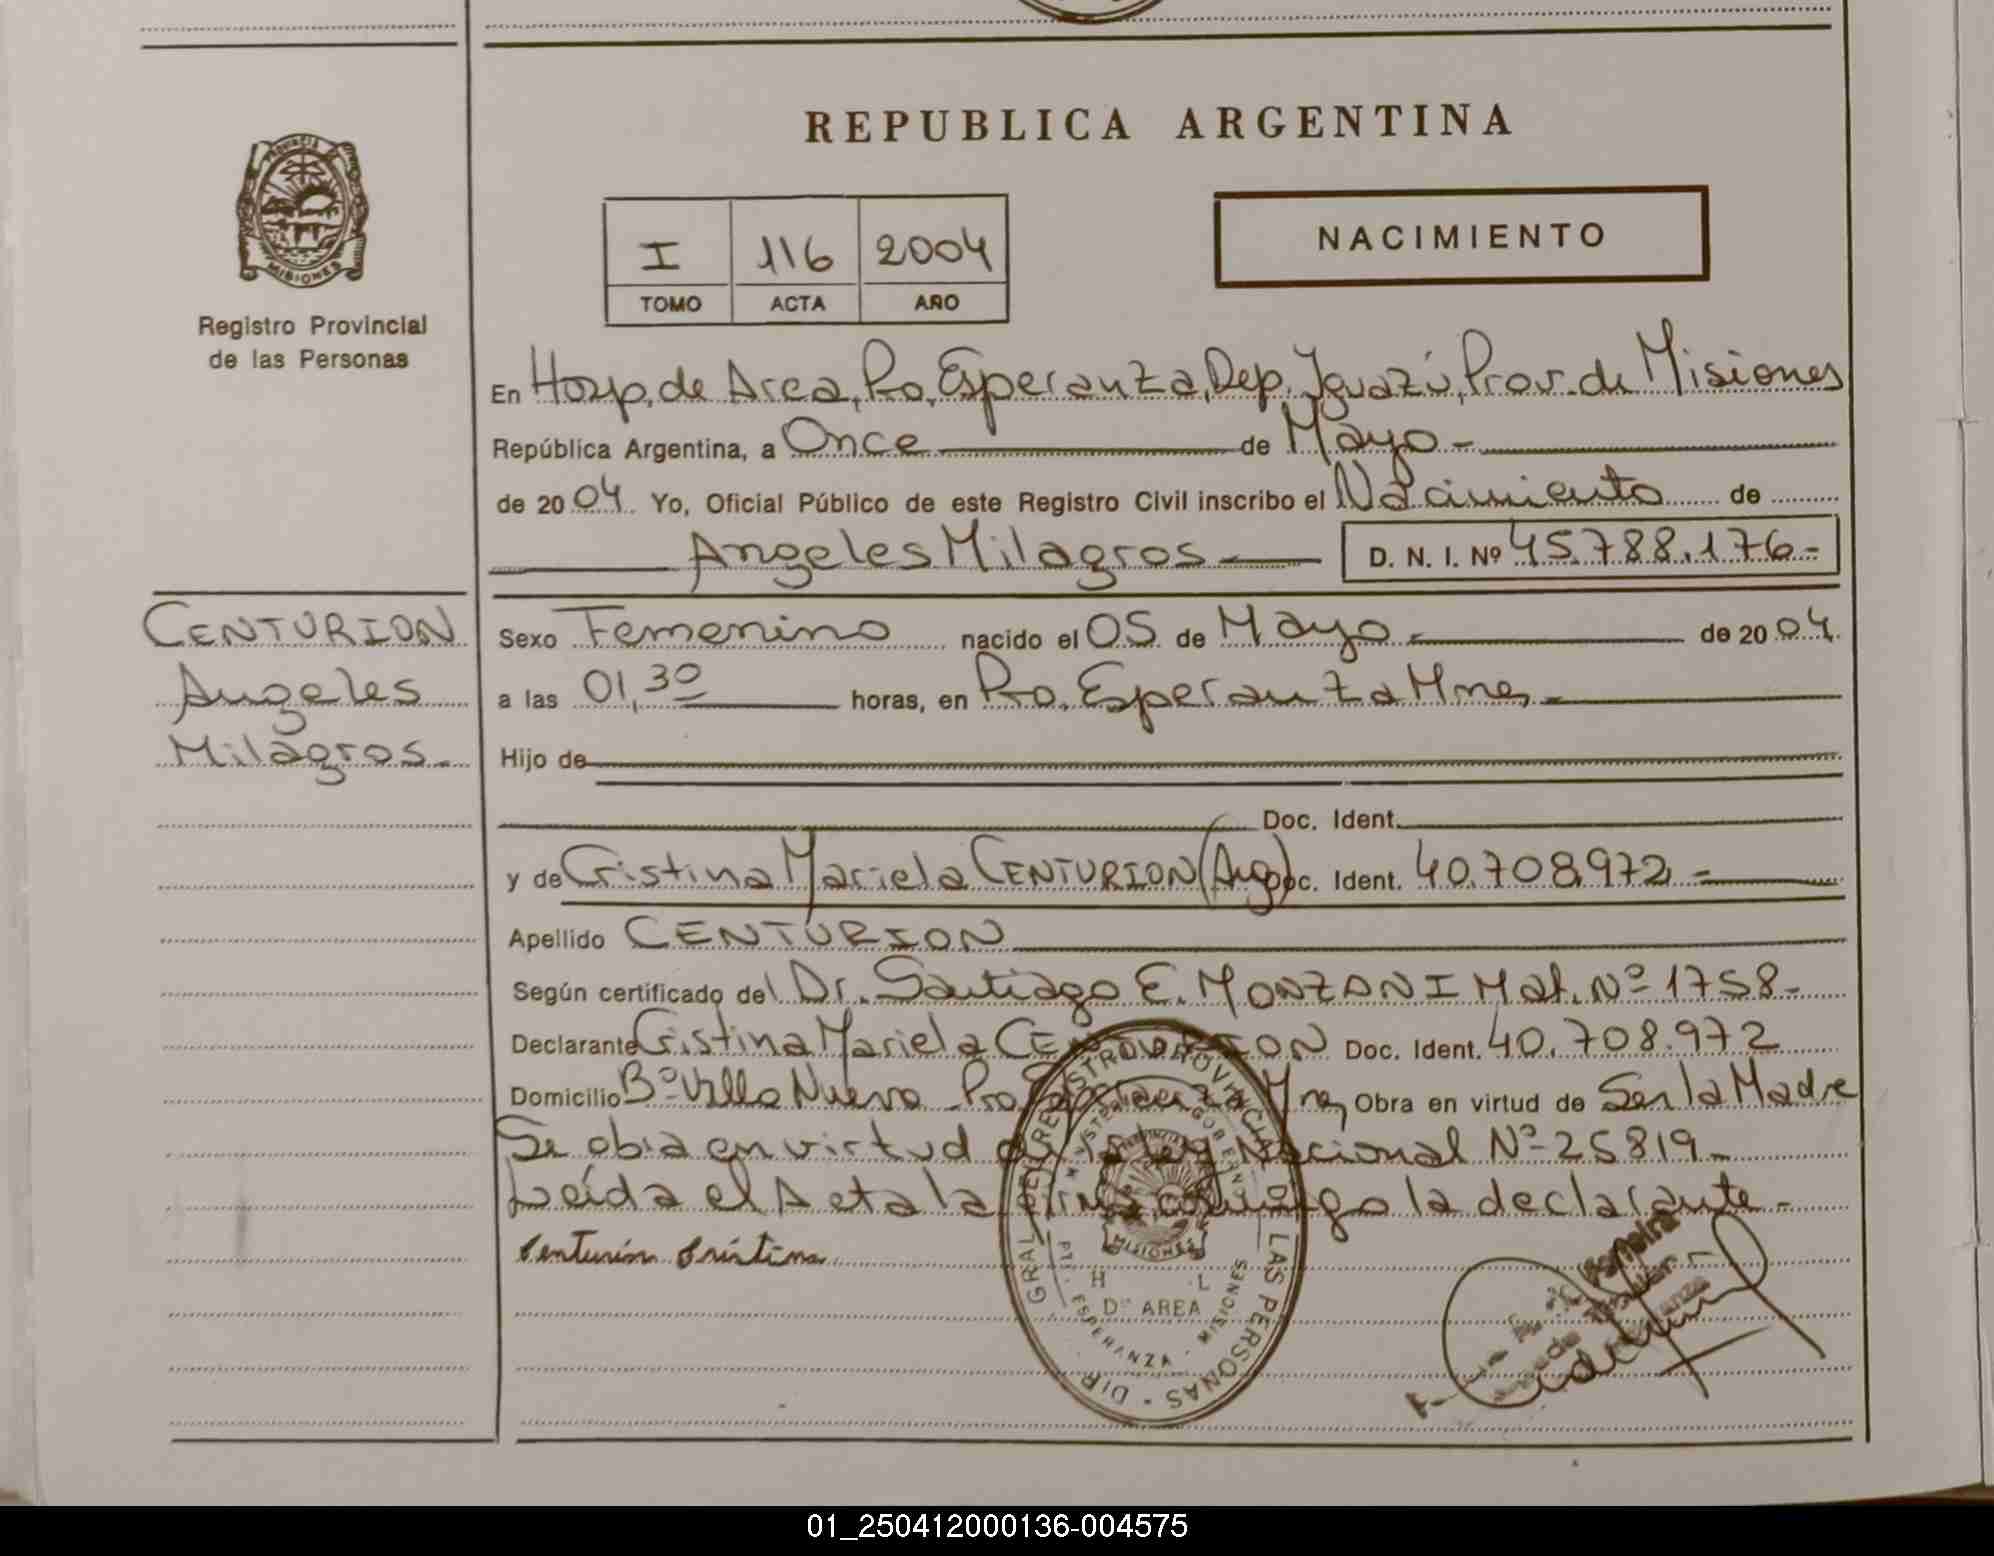 REPUBLICA ARGENTINA
PROVINCIA DE
MISIONES
Registro Provincial
de las Personas
I 116 2004
TOMO ACTA AÑO
NACIMIENTO
En Hosp. de Area, Pto. Esperanza, Dep. Iguazú, Prov. de Misiones
República Argentina, a Once de Mayo.-
de 2004. Yo, Oficial Público de este Registro Civil inscribo el Nacimiento de
Angeles Milagros D. N. I. Nº 45.788.176.-
CENTURION
Angeles
Milagros.-
Sexo Femenino nacido el 05 de Mayo.- de 2004.
a las 01,30 horas, en Pto. Esperanza Mnes.-
Hijo de
Doc. Ident.
y de Cristina Mariela CENTURION (Arg) Doc. Ident. 40.708.972.-
Apellido CENTURION
Según certificado del Dr. Santiago E. MONZANI Mat. Nº 1758.-
Declarante Cristina Mariela CENTURION Doc. Ident. 40.708.972
Domicilio Bº Villa Nueva Pto. Esperanza Mnes, Obra en virtud de Ser la Madre
Se obra en virtud de la Ley Nacional Nº 25819.-
Leída el Acta la firma conmigo la declarante.-
Centurión Cristina
DIR. GRAL. DEL REGISTRO PROVINCIAL DE LAS PERSONAS
MINISTERIO DE GOBIERNO
MISIONES
H L
Dº AREA
PTO. ESPERANZA - MISIONES
01_250412000136-004575